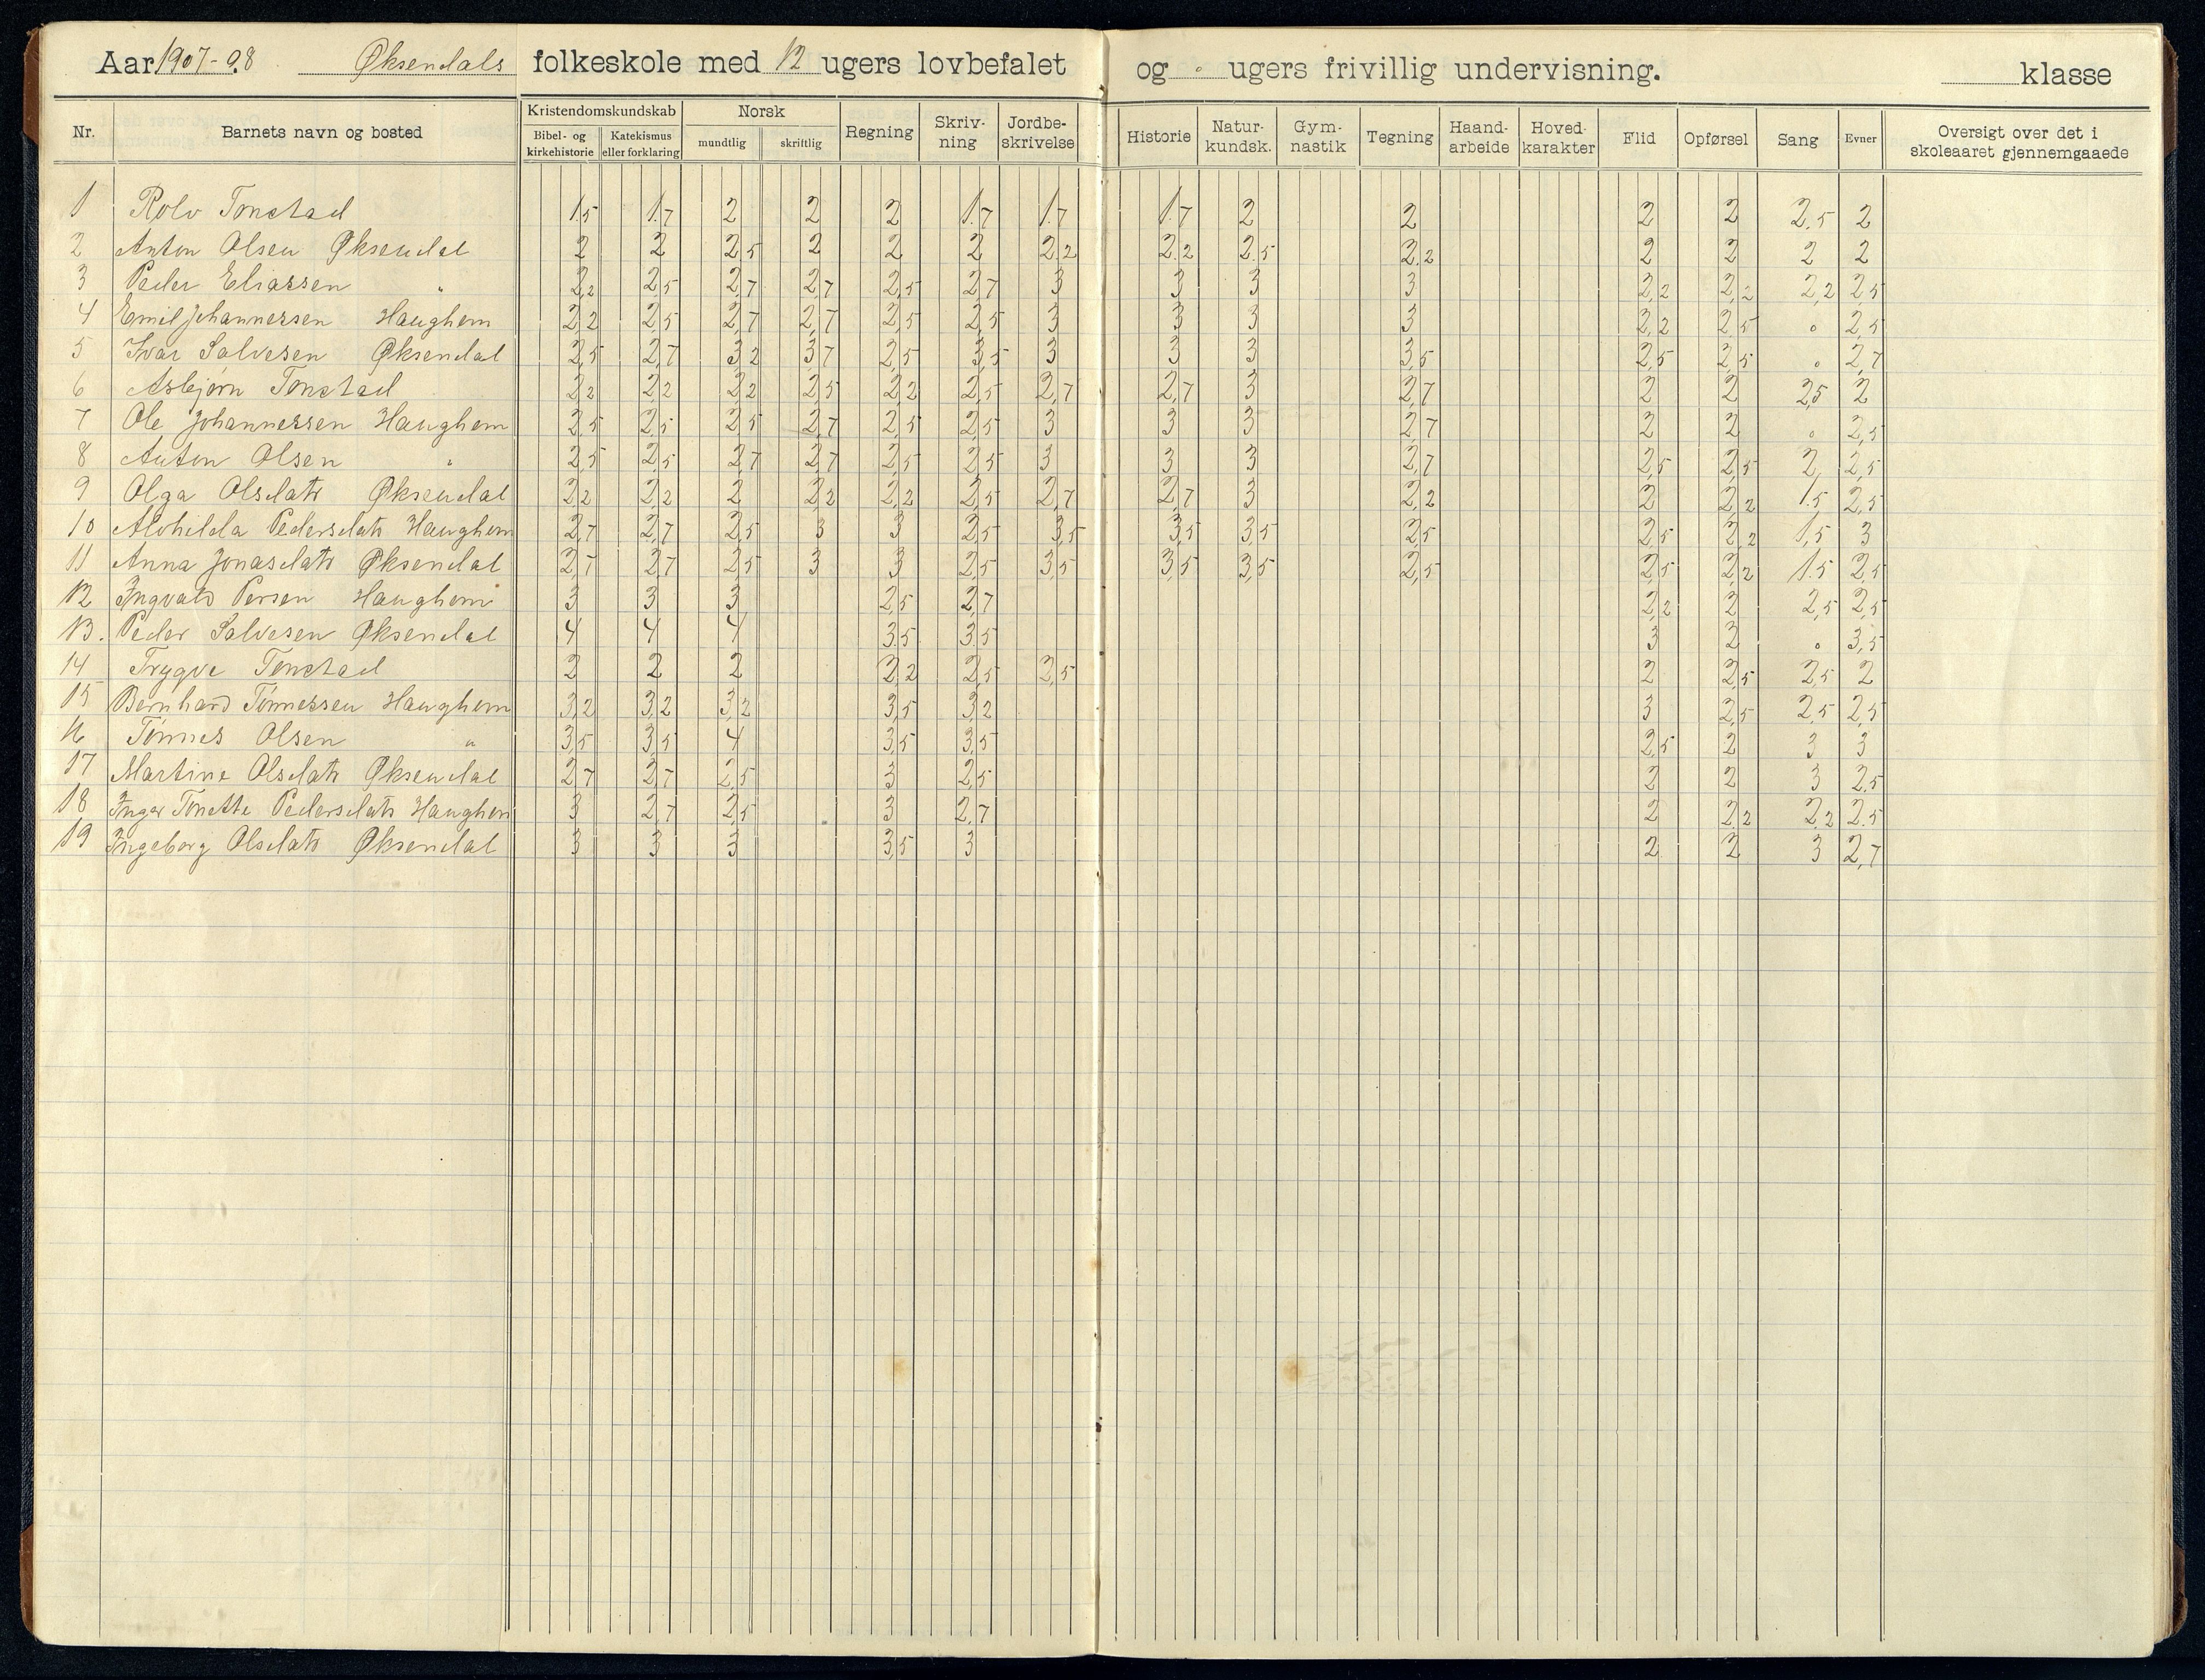 Aar 1907-08 Øksendals folkeskole med 12 ugers lovbefalet og . ugers frivillig undervisning. klasse
Nr. Barnets navn og bosted Kristendomskundskab Bibel- og kirkehistorie Katekismus eller forklaring Norsk mundtlig skriftlig Regning Skriv-ning Jordbe-skrivelse Historie Natur-kundsk. Gym-nastik Tegning Haand-arbeide Hoved-karakter Flid Opførsel Sang Evner Oversigt over det i skoleaaret gjennemgaaede
1 Rolv Tonstad 1.5 1.7 2 2 2 1.7 1.7 1.7 2 2 2 2 2,5 2
2 Anton Olsen Øksendal 2 2 2,5 2 2 2 2.2 2.2 2.5 2.2 2 2 2 2
3 Peder Eliassen " 2,2 2,5 2,7 2,7 2,5 2,7 3 3 3 3 2,2 2,2 2,2 2,5
4 Emil Johannessen Haughom 2,2 2,5 2,7 2,7 2,5 2,5 3 3 3 3 2,2 2,5 . 2,5
5 Ivar Salvesen Øksendal 2,5 2,7 3,2 3,7 2,5 3,5 3 3 3 3,5 2,5 2,5 . 2,7
6 Asbjørn Tonstad 2,2 2,2 2,2 2,5 2,2 2,5 2,7 2,7 3 2,7 2 2 2,5 2
7 Ole Johannessen Haughom 2,5 2,5 2,5 2,7 2,5 2,5 3 3 3 2,7 2 2 . 2,5
8 Anton Olsen " 2,5 2,5 2,7 2,7 2,5 2,5 3 3 3 2,7 2,5 2,5 2, 2,5
9 Olga Olsdatr Øksendal 2,2 2,2 2 2,2 2,2 2,5 2,7 2,7 3 2,2 2 2,2 1.5 2,5
10 Alvhilda Pedersdatr Haughom 2,7 2,7 2,5 3 3 2,5 3,5 3,5 3,5 2,5 2,5 2,2 1,5 3
11 Anna Jonasdatr Øksendal 2,7 2,7 2,5 3 3 2,5 3,5 3,5 3,5 2,5 2,5 2,2 1.5 2,5
12 Ingvald Persen Haughom 3 3 3 2,5 2,7 2,2 2 2,5 2,5
13. Peder Salvesen Øksendal 4 4 4 3.5 3.5 3 2 . 3,5
14 Trygve Tonstad 2 2 2 2,2 2,5 2,5 2 2,5 2,5 2
15 Bernhard Tønnessen Haughom 3,2 3,2 3,2 3,5 3,2 3 2,5 2,5 2,5
16 Tønnes Olsen " 3,5 3,5 4 3,5 3,5 2,5 2 3 3
17 Martine Olsdatr Øksendal 2,7 2,7 2,5 3 2,5 2 2 3 2,5
18 Inger Tonette Pedersdatr Haughom 3 2,7 2,5 3 2,7 2 2,2 2,2 2.5
19 Ingeborg Olsdatr Øksendal 3 3 3 3,5 3 2 2 3 2,7